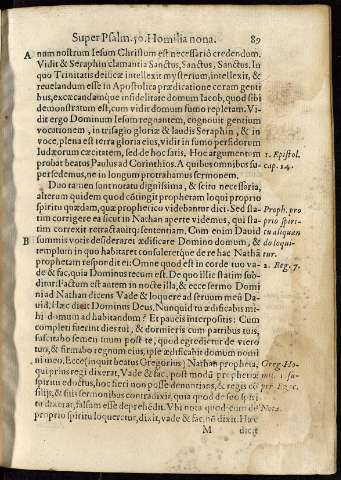 Super Psalm. 50. Homilia nona. 89
A num nostrum Iesum Christum est necessariò credendum.
Vidit & Seraphin clamantia Sanctus, Sanctus, Sanctus. In
quo Trinitatis deificæ intellexit mysterium, intellexit, &
reuelandum esse in Apostolica prædicatione ceram genti
bus, excæcandamque infidelitate domum Iacob, quod sibi
demonstratum est, cum vidit domum fumo repletam. Vi
dit ergo Dominum Iesum regnantem, cognouit gentium
vocationem, in trisagio gloriæ & laudis Seraphin, & in
voce, plena est terra gloria eius, vidit in fumo perfidorum
Iudæorum cæcitatem, sed de hoc satis. Hoc argumentum
probat beatus Paulus ad Corinthios. A quibus omnibus su-
persedemus, ne in longum protrahamus sermonem.
1. Epistol.
cap. 14.
Duo tamen sunt notatu dignissima, & scitu necessaria,
alterum quidem quod cōtingit prophetam loqui proprio
spiritu quædam, quæ prophetico videbantur dici. Sed sta-
tim corrigere ea sicut in Nathan aperte videmus, qui sta-
tim correxit retractauitq; sententiam. Cum enim Dauid
B summis votis desideraret ædificare Domino domum, &
templum in quo habitaret consuleretque de re hac Nathā
prophetam respondit ei: Omne quod est in corde tuo va-
de & fac, quia Dominus tecum est. De quo ille statim sub-
ditur: Factum est autem in nocte illa, & ecce sermo Domi
ni ad Nathan dicens Vade & loquere ad seruum meū Da
uid, Hæc dicit Dominus Deus, Nunquid tu ædificabis mi-
hi domum ad habitandum? Et paucis interpositis: Cum
completi fuerint dies tui, & dormieris cum patribus tuis,
suscitabo semen tuum post te, quod egredietur de vtero
tuo, & firmabo regnum eius, ipse ædificabit domum nomi
ni meo, Ecce (inquit beatus Gregorius) Nathan propheta,
qui prius regi dixerat, Vade & fac, post modū prophetiæ
spiritu edoctus, hoc fieri non posse denuntians, & regis cō
silijs, & suis sermonibus contradixit, quia quod de suo spiri
tu dixerat, falsum esse deprehēdit. Vbi nota quod cum de
proprio spiritu loqueretur, dixit, vade & fac, nō dixit. Hæc
Proph. pro
prio spiri-
tu aliquan
do loqui-
tur.
2. Reg. 7.
Greg. Ho-
Nota.
M dicit